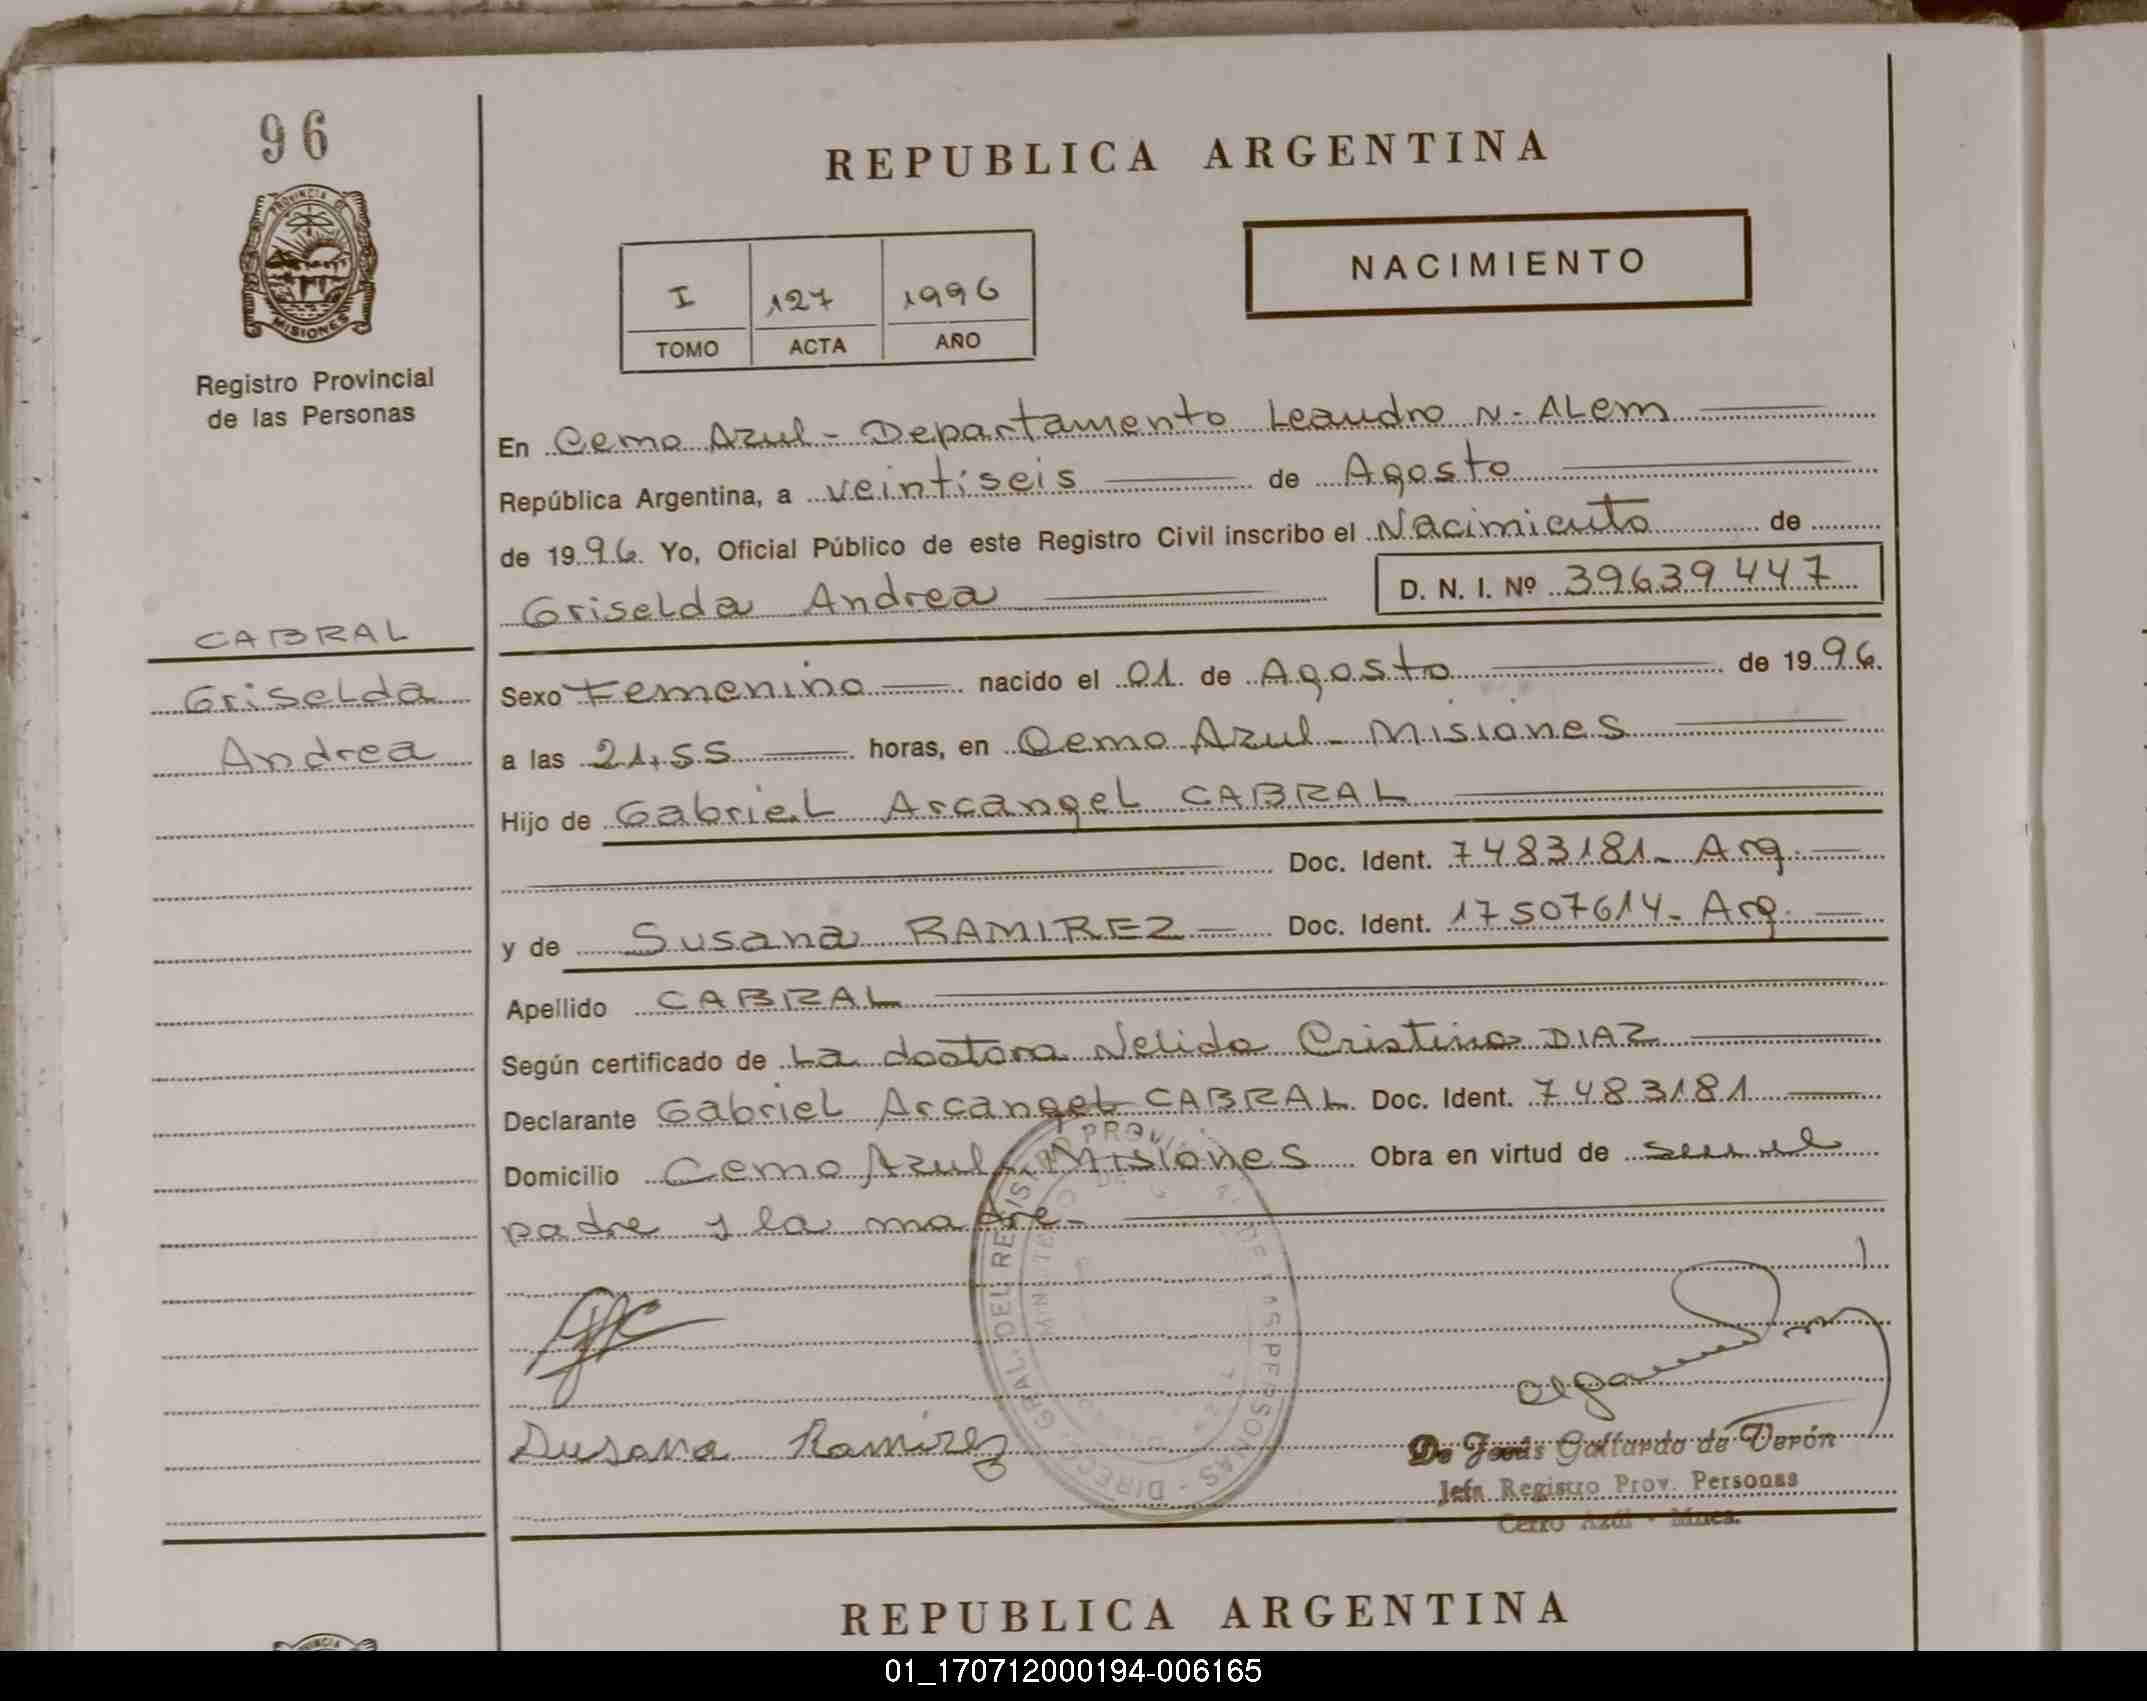 96
PROVINCIA DE
MISIONES
Registro Provincial
de las Personas
CABRAL
Griselda
Andrea
REPUBLICA ARGENTINA
NACIMIENTO
I 127 1996
TOMO ACTA AÑO
En Cerro Azul - Departamento Leandro N. Alem
República Argentina, a veintiseis de Agosto
de 1996. Yo, Oficial Público de este Registro Civil inscribo el Nacimiento de
Griselda Andrea D. N. I. Nº 39639447
Sexo Femenino nacido el 01 de Agosto de 1996.
a las 21,55 horas, en Cerro Azul - Misiones
Hijo de Gabriel Arcangel CABRAL
Doc. Ident. 7483181- Arg.
y de Susana RAMIREZ Doc. Ident. 17507614- Arg.
Apellido CABRAL
Según certificado de La doctora Nelida Cristina DIAZ
Declarante Gabriel Arcangel CABRAL Doc. Ident. 7483181
Domicilio Cerro Azul - Misiones Obra en virtud de ser el
padre y la madre-
Susana Ramirez
Olga
De Jesús Gallardo de Verón
Jefa Registro Prov. Personas
Cerro Azul - Mnes.
REPUBLICA ARGENTINA
01_170712000194-006165